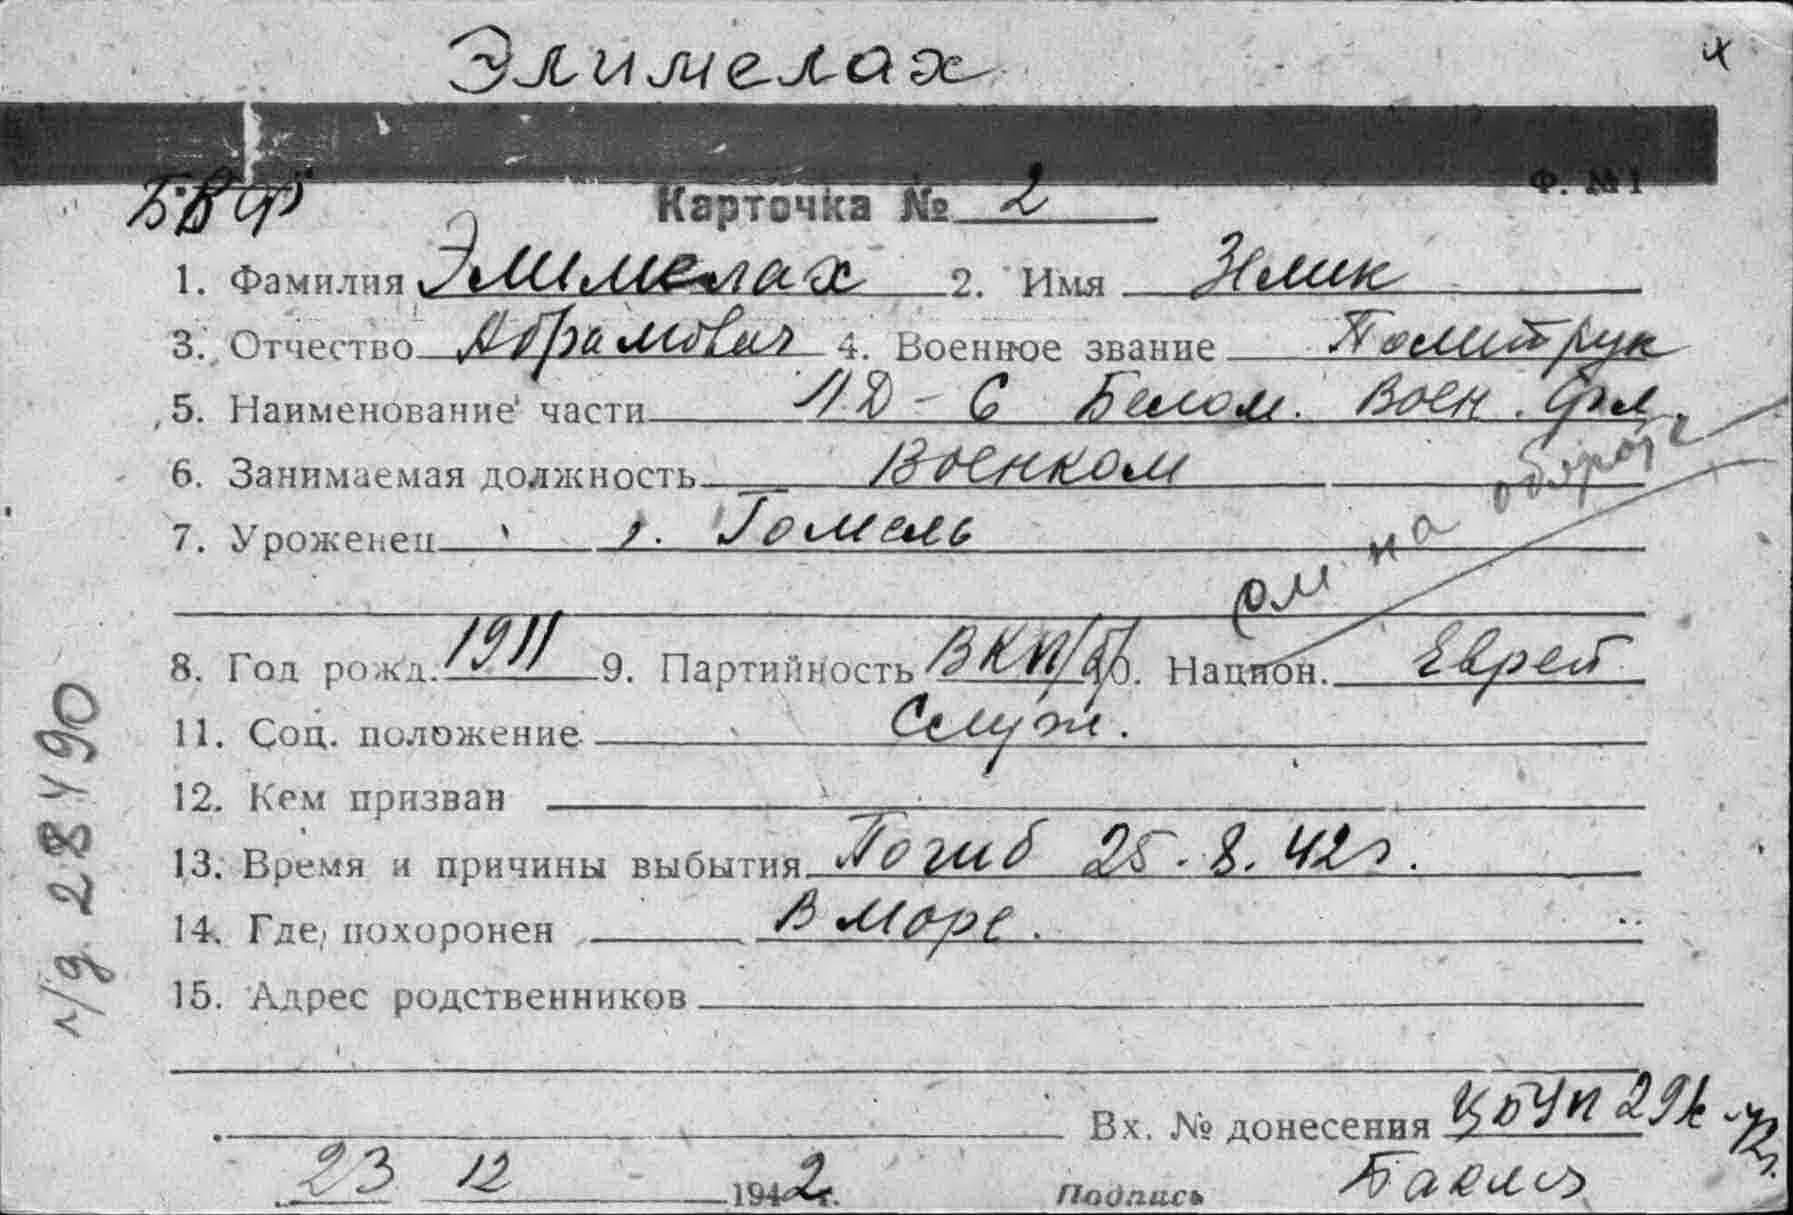 Элимелах
х
Ф. №1
БВФ
Карточка № 2
1. Фамилия Элимелах 2. Имя Зелик
3. Отчество Абрамович 4. Военное звание Политрук
5. Наименование части ПД-6 Белом. Воен. Фл.
6. Занимаемая должность Военком
7. Уроженец г. Гомель
см на обороте
8. Год рожд. 1911 9. Партийность ВКП/б/ 10. Национ. Еврей
11. Соц. положение Служ.
12. Кем призван
13. Время и причины выбытия Погиб 25.8.42г.
14. Где похоронен В море.
15. Адрес родственников
Вх. № донесения
23 12 1942г. Подпись
л/д 28490